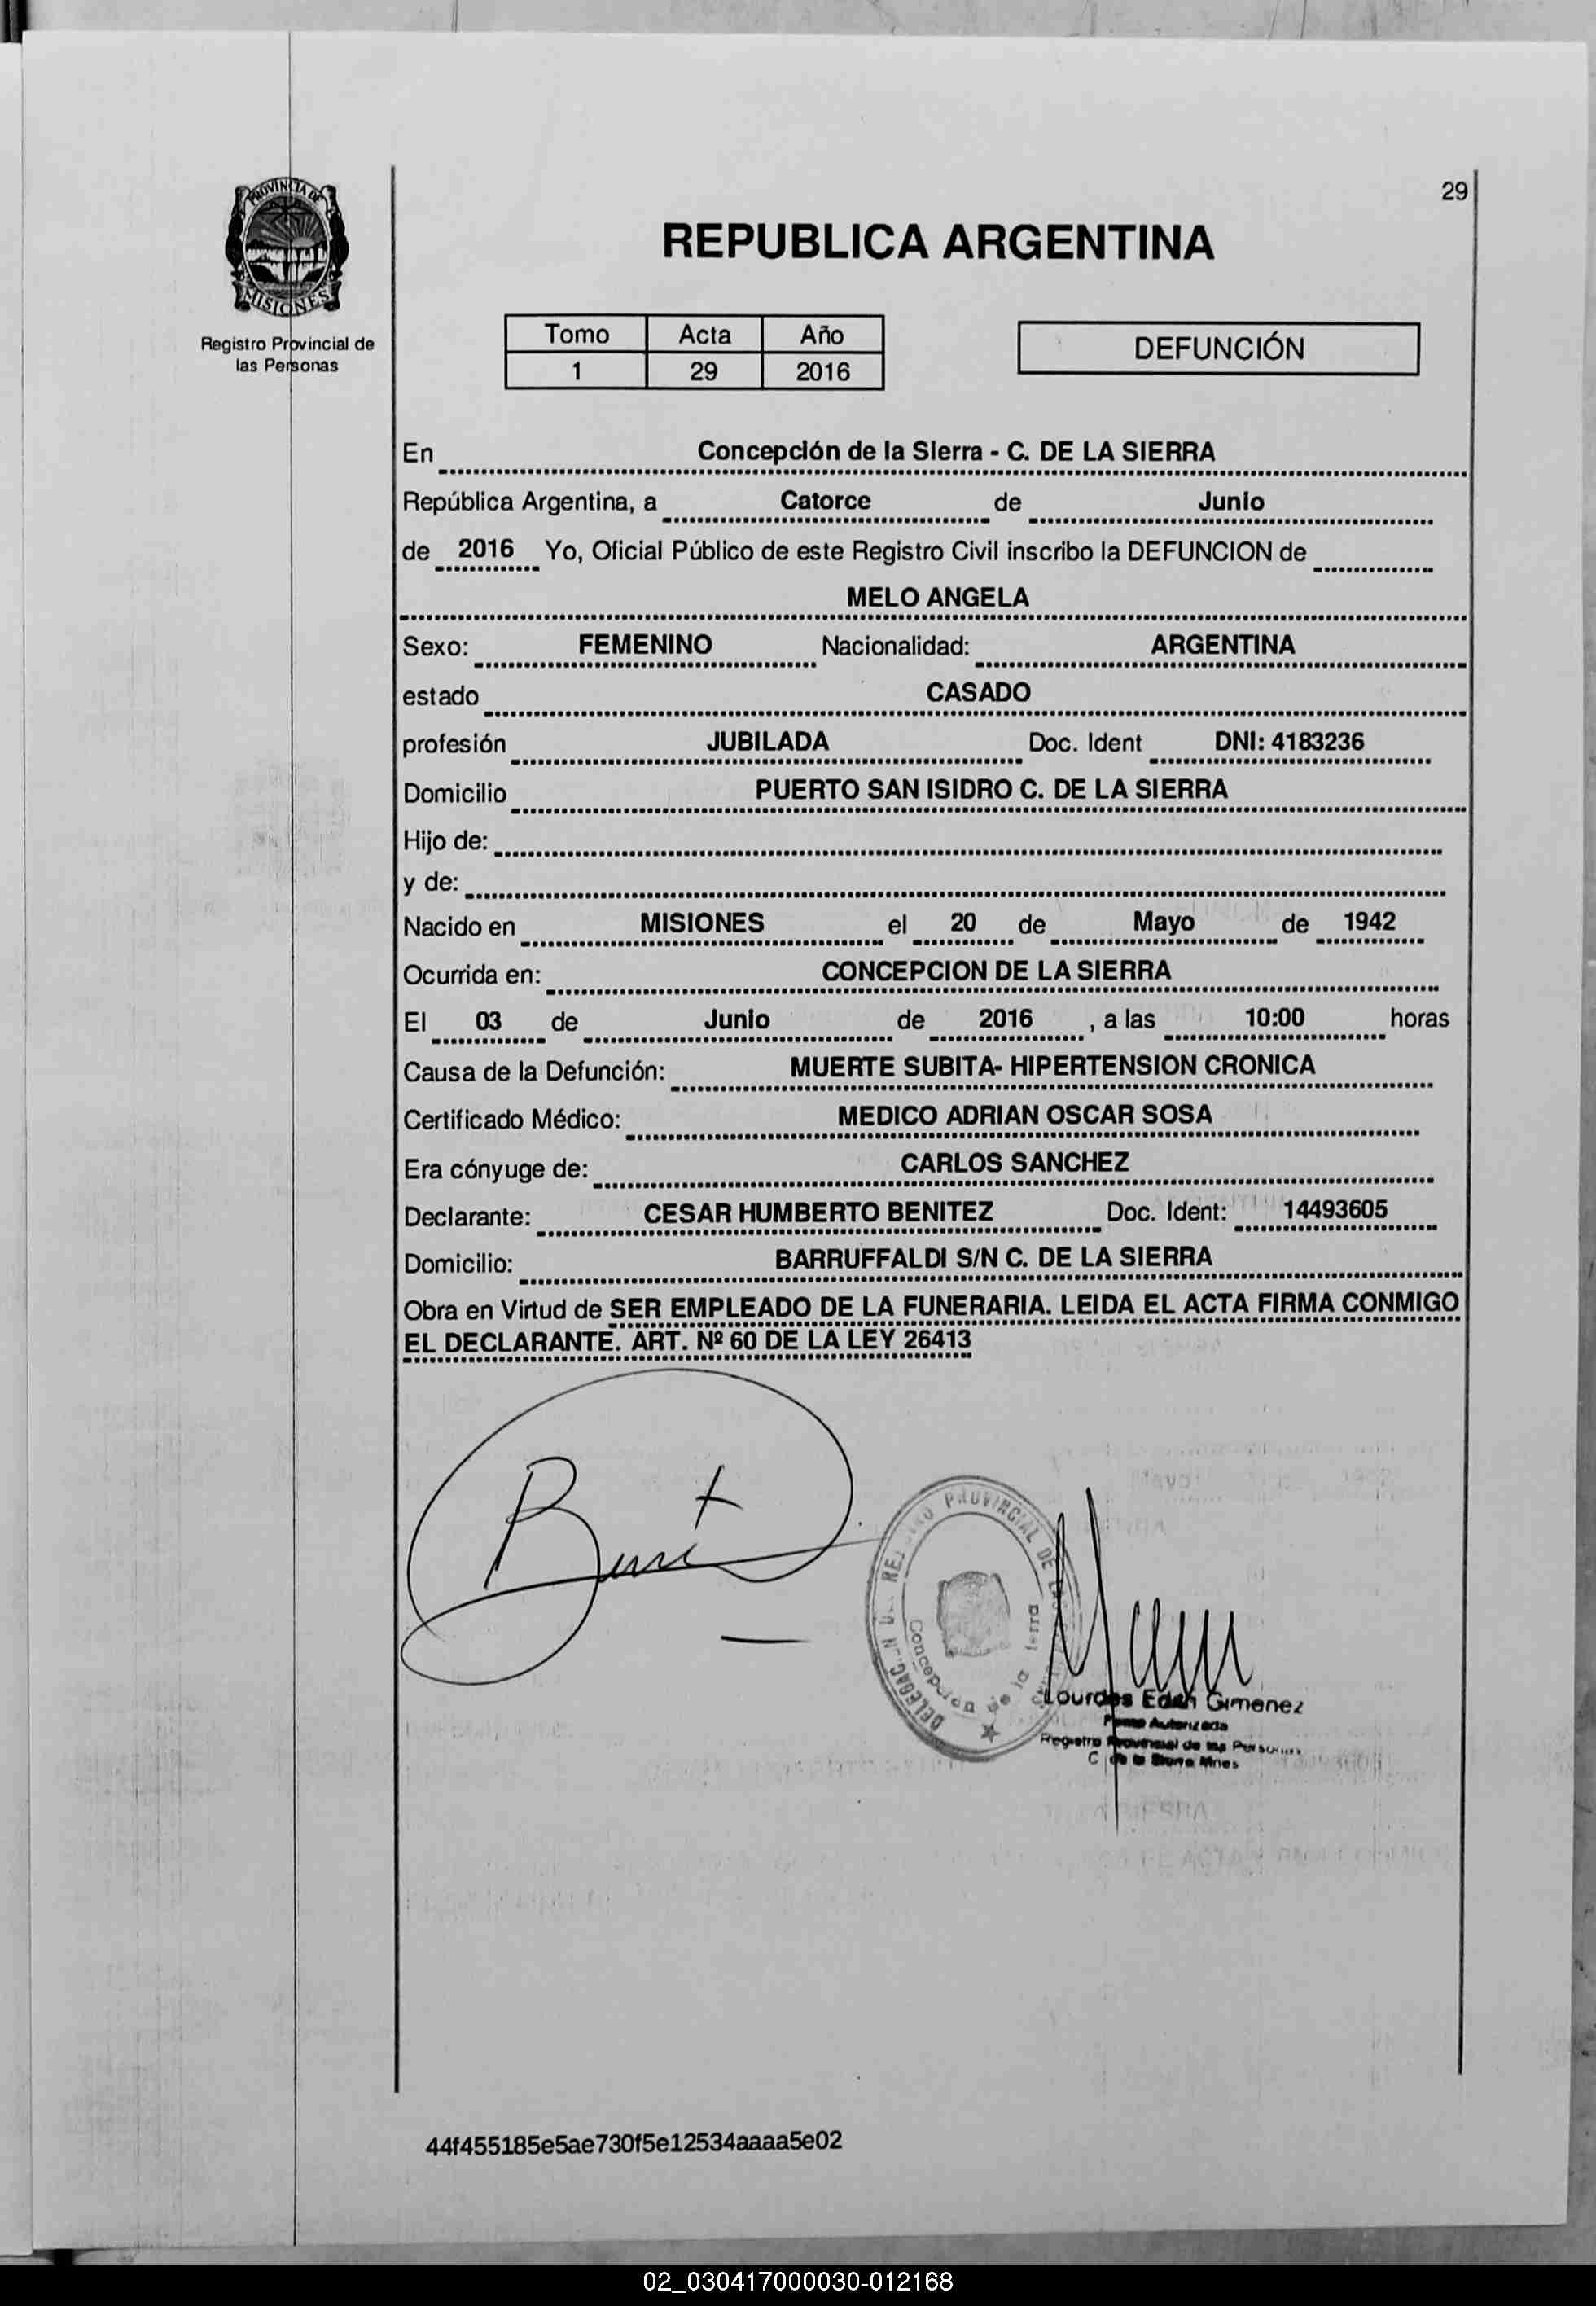 29
PROVINCIA DE
MISIONES
Registro Provincial de
las Personas
REPUBLICA ARGENTINA
Tomo Acta Año
1 29 2016
DEFUNCIÓN
En Concepción de la Sierra - C. DE LA SIERRA
República Argentina, a Catorce de Junio
de 2016 Yo, Oficial Público de este Registro Civil inscribo la DEFUNCION de
MELO ANGELA
Sexo: FEMENINO Nacionalidad: ARGENTINA
estado CASADO
profesión JUBILADA Doc. Ident DNI: 4183236
Domicilio PUERTO SAN ISIDRO C. DE LA SIERRA
Hijo de:
y de:
Nacido en MISIONES el 20 de Mayo de 1942
Ocurrida en: CONCEPCION DE LA SIERRA
El 03 de Junio de 2016 , a las 10:00 horas
Causa de la Defunción: MUERTE SUBITA- HIPERTENSION CRONICA
Certificado Médico: MEDICO ADRIAN OSCAR SOSA
Era cónyuge de: CARLOS SANCHEZ
Declarante: CESAR HUMBERTO BENITEZ Doc. Ident: 14493605
Domicilio: BARRUFFALDI S/N C. DE LA SIERRA
Obra en Virtud de SER EMPLEADO DE LA FUNERARIA. LEIDA EL ACTA FIRMA CONMIGO
EL DECLARANTE. ART. Nº 60 DE LA LEY 26413
PROVINCIAL DE
Concepción de la
Lourdes Edith Gimenez
Autorizada
Registro Provincial de las
C. de la
44f455185e5ae730f5e12534aaaa5e02
02_030417000030-012168